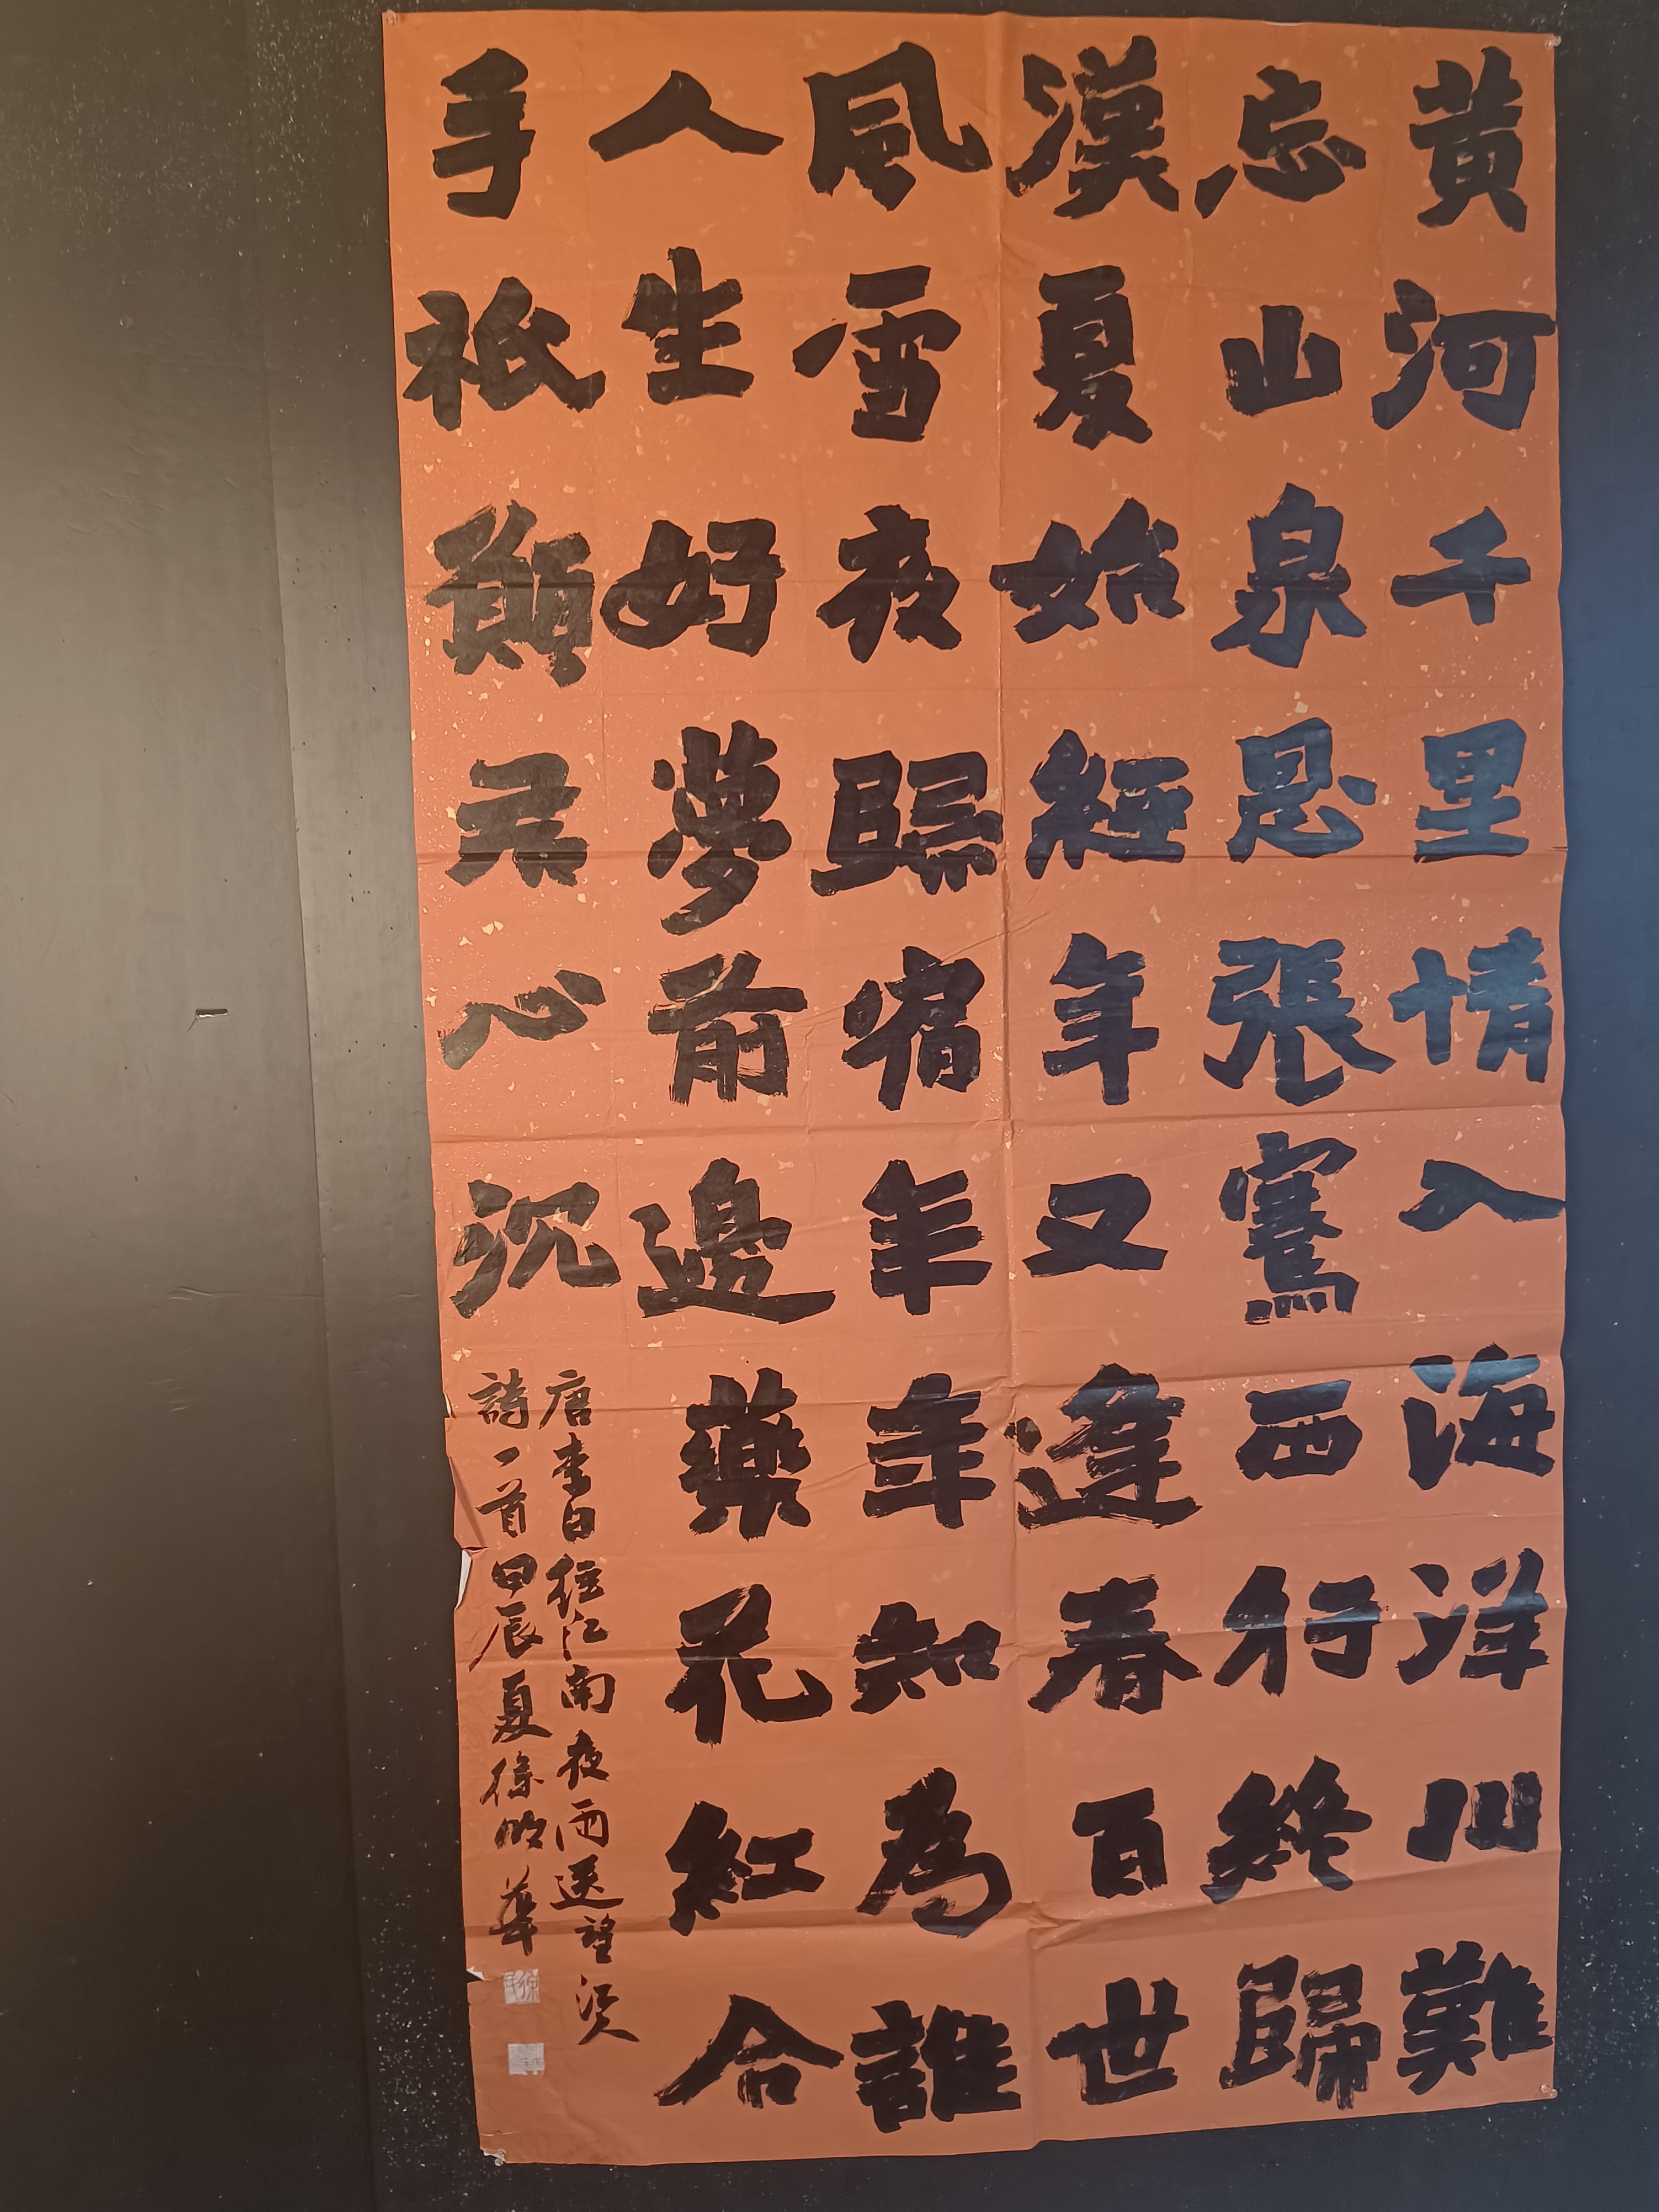 黄河千里情入海洋川難
忘山泉恩張騫西行終歸
漢夏始經年又逢春百世
風雪夜歸宿年年知為誰
人生好夢前邊藥花紅合
手祇願君心沉
唐李白往江南夜雨送望漢
詩一首甲辰夏徐明華